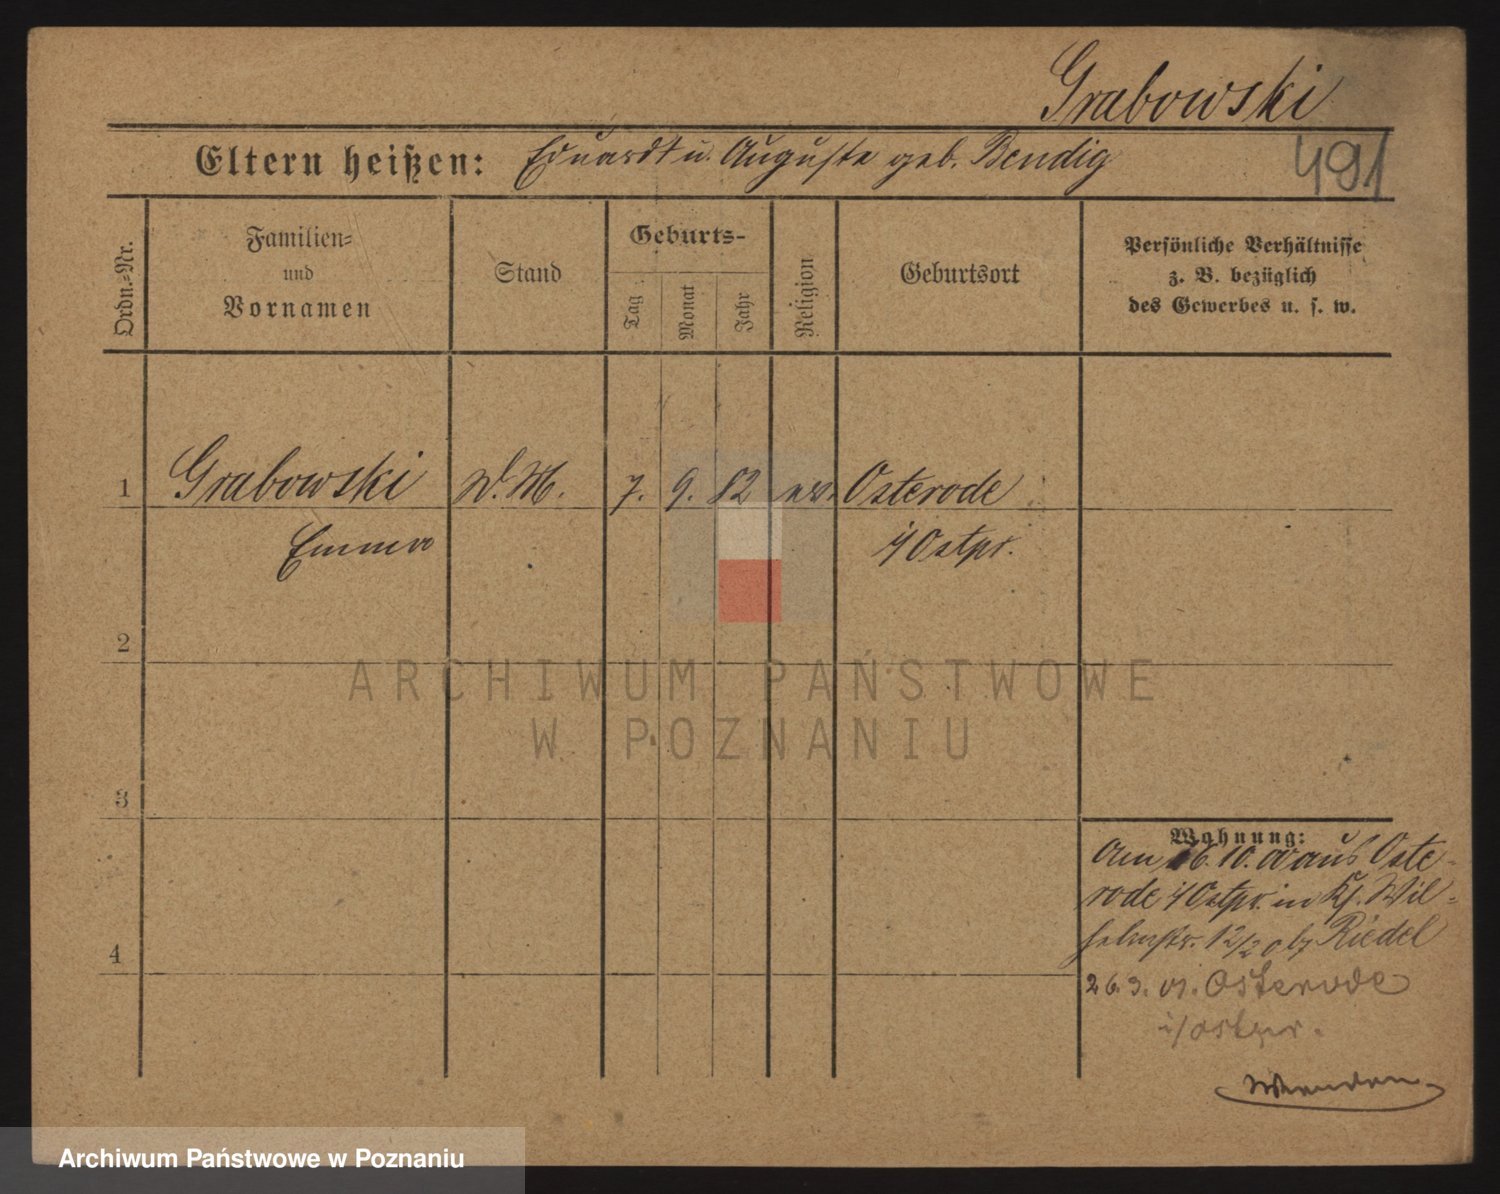 Grabowski
Eltern heißen: Eduard u. Auguste geb. Bendig
491
Ordn.-Nr.
Familien- und Vornamen
Stand
Geburts-
Tag
Monat
Jahr
Religion
Geburtsort
Persönliche Verhältnisse
z. B. bezüglich
des Gewerbes u. s. w.
1 Grabowski D. M. 7. 9. 82 ev. Osterode
Emma i/Ostpr.
2
3
4
Wohnung:
Am 16. 10. 00 aus Oste-
rode i/Ostpr. in Kf. Wil-
helmstr. 12/2 Riedel
26. 3. 01. Osterode
i/Ostpr.
ARCHIWUM PAŃSTWOWE
W POZNANIU
Archiwum Państwowe w Poznaniu